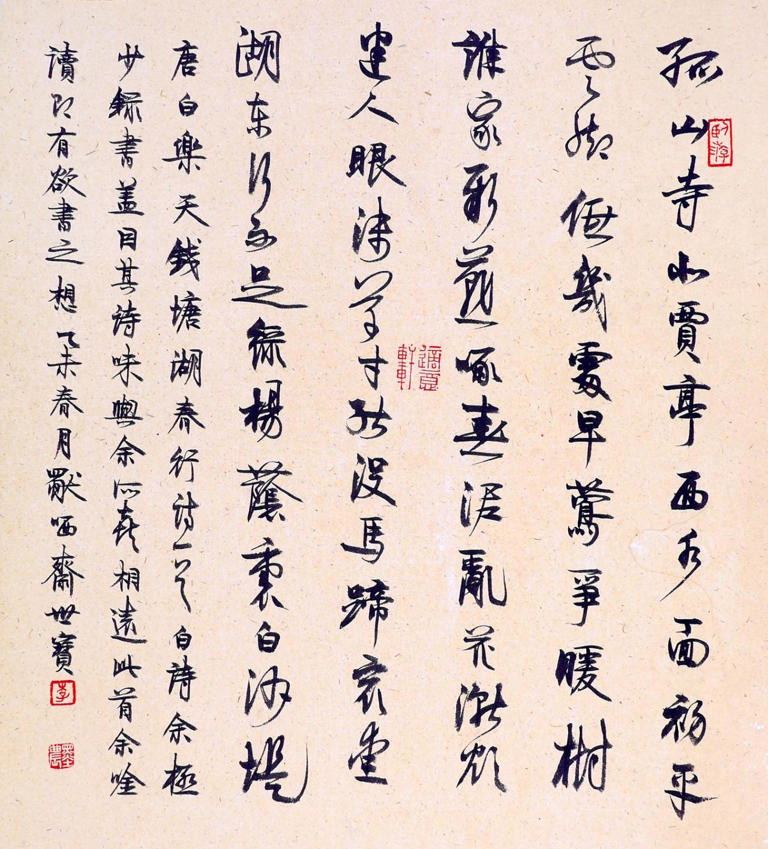 孤山寺北賈亭西水面初平
雲脚低幾處早鶯爭暖樹
誰家新燕啄春泥亂花漸欲
迷人眼淺草才能沒馬蹄最愛
湖東行不足綠楊蔭裏白沙堤
唐白樂天錢塘湖春行詩一首白詩余極
少錄書蓋因其詩味與余所喜相遠此首余唫
讀即有欲書之想乙未春月齋世寶
臥游
適意軒
李